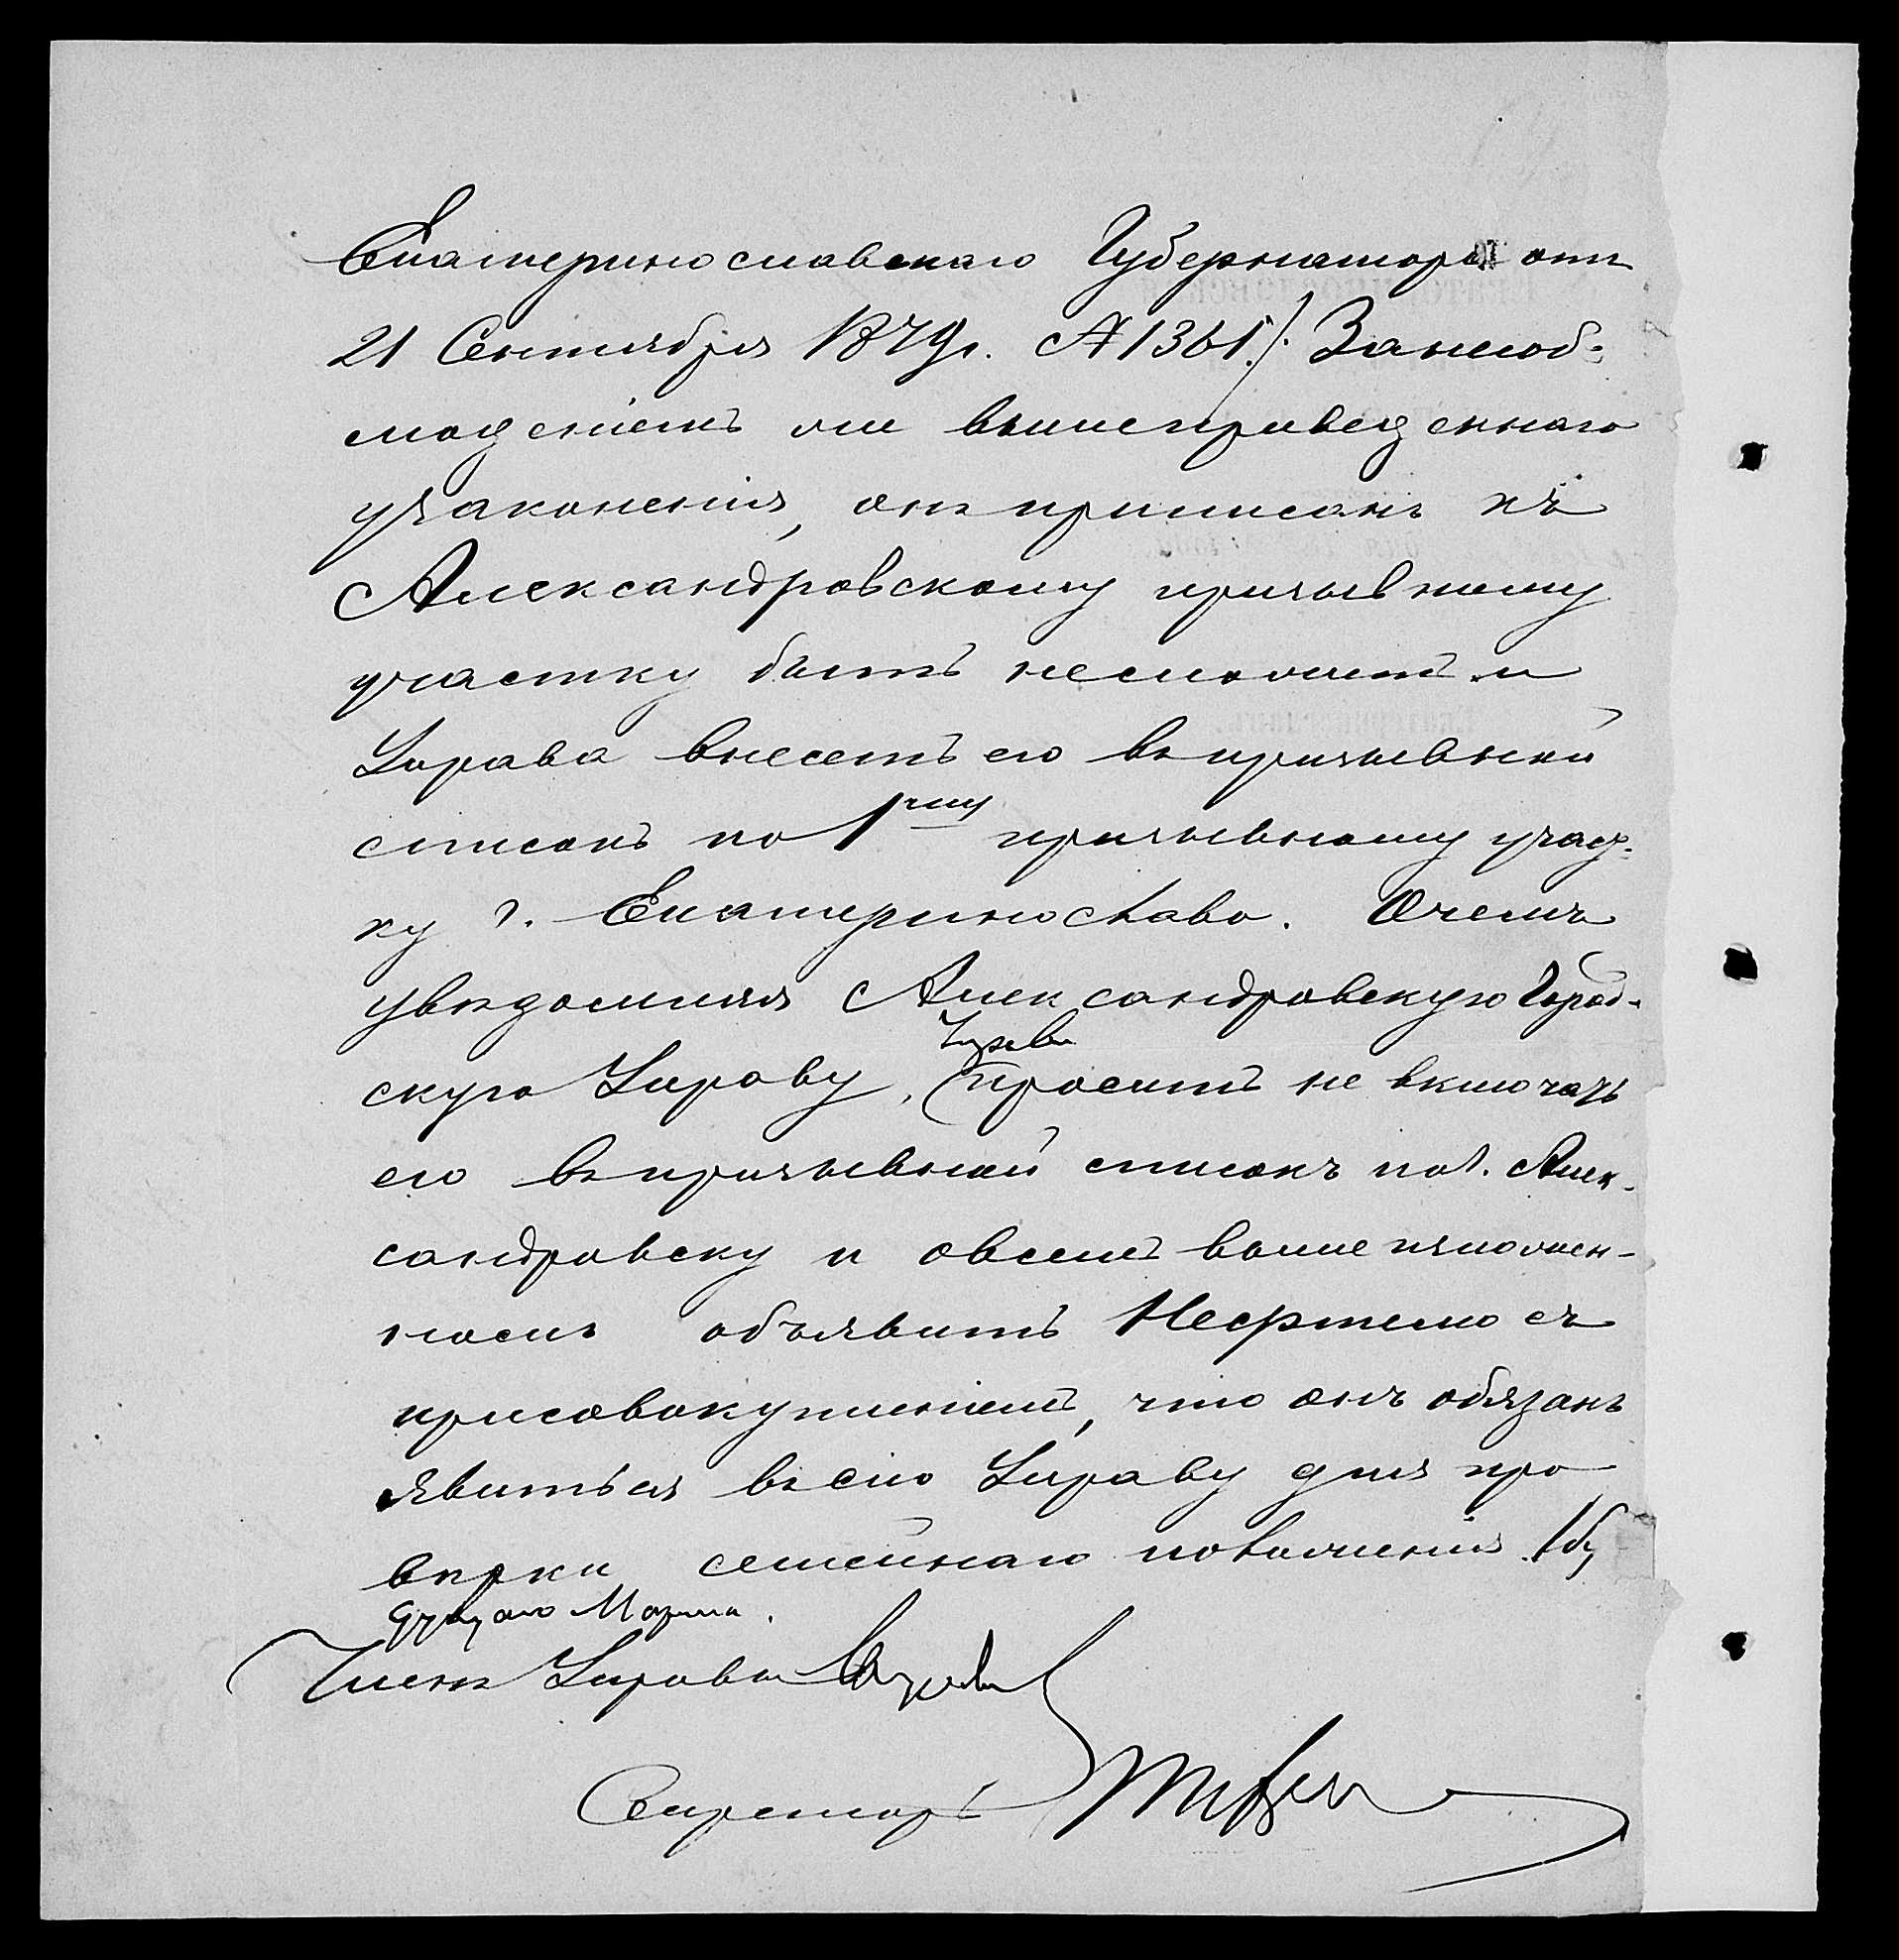 Екатеринославскаго Губернатора отъ
21 Сентября 1879г. № 1361). Занесоб-
люденіемъ же вышеприведеннаго
узаконенія, онъ приписанъ къ
Александровскому призывному
участку быть не можетъ и
Управа внесетъ его въ призывной
списокъ по 1му призывному участ-
ку г. Екатеринослава. О чемъ
увѣдомляя Александровскую Город-
скую Управу, Управа проситъ не включать
его въ призывной списокъ по г. Алек-
сандровску и о всемъ выше изложен-
номъ объявить Нефтелю съ
присовокупленіемъ, что онъ обязанъ
явиться въ сію Управу для про
вѣрки семейнаго положенія 1
будущаго Марта.
Членъ Управы
Секретарь